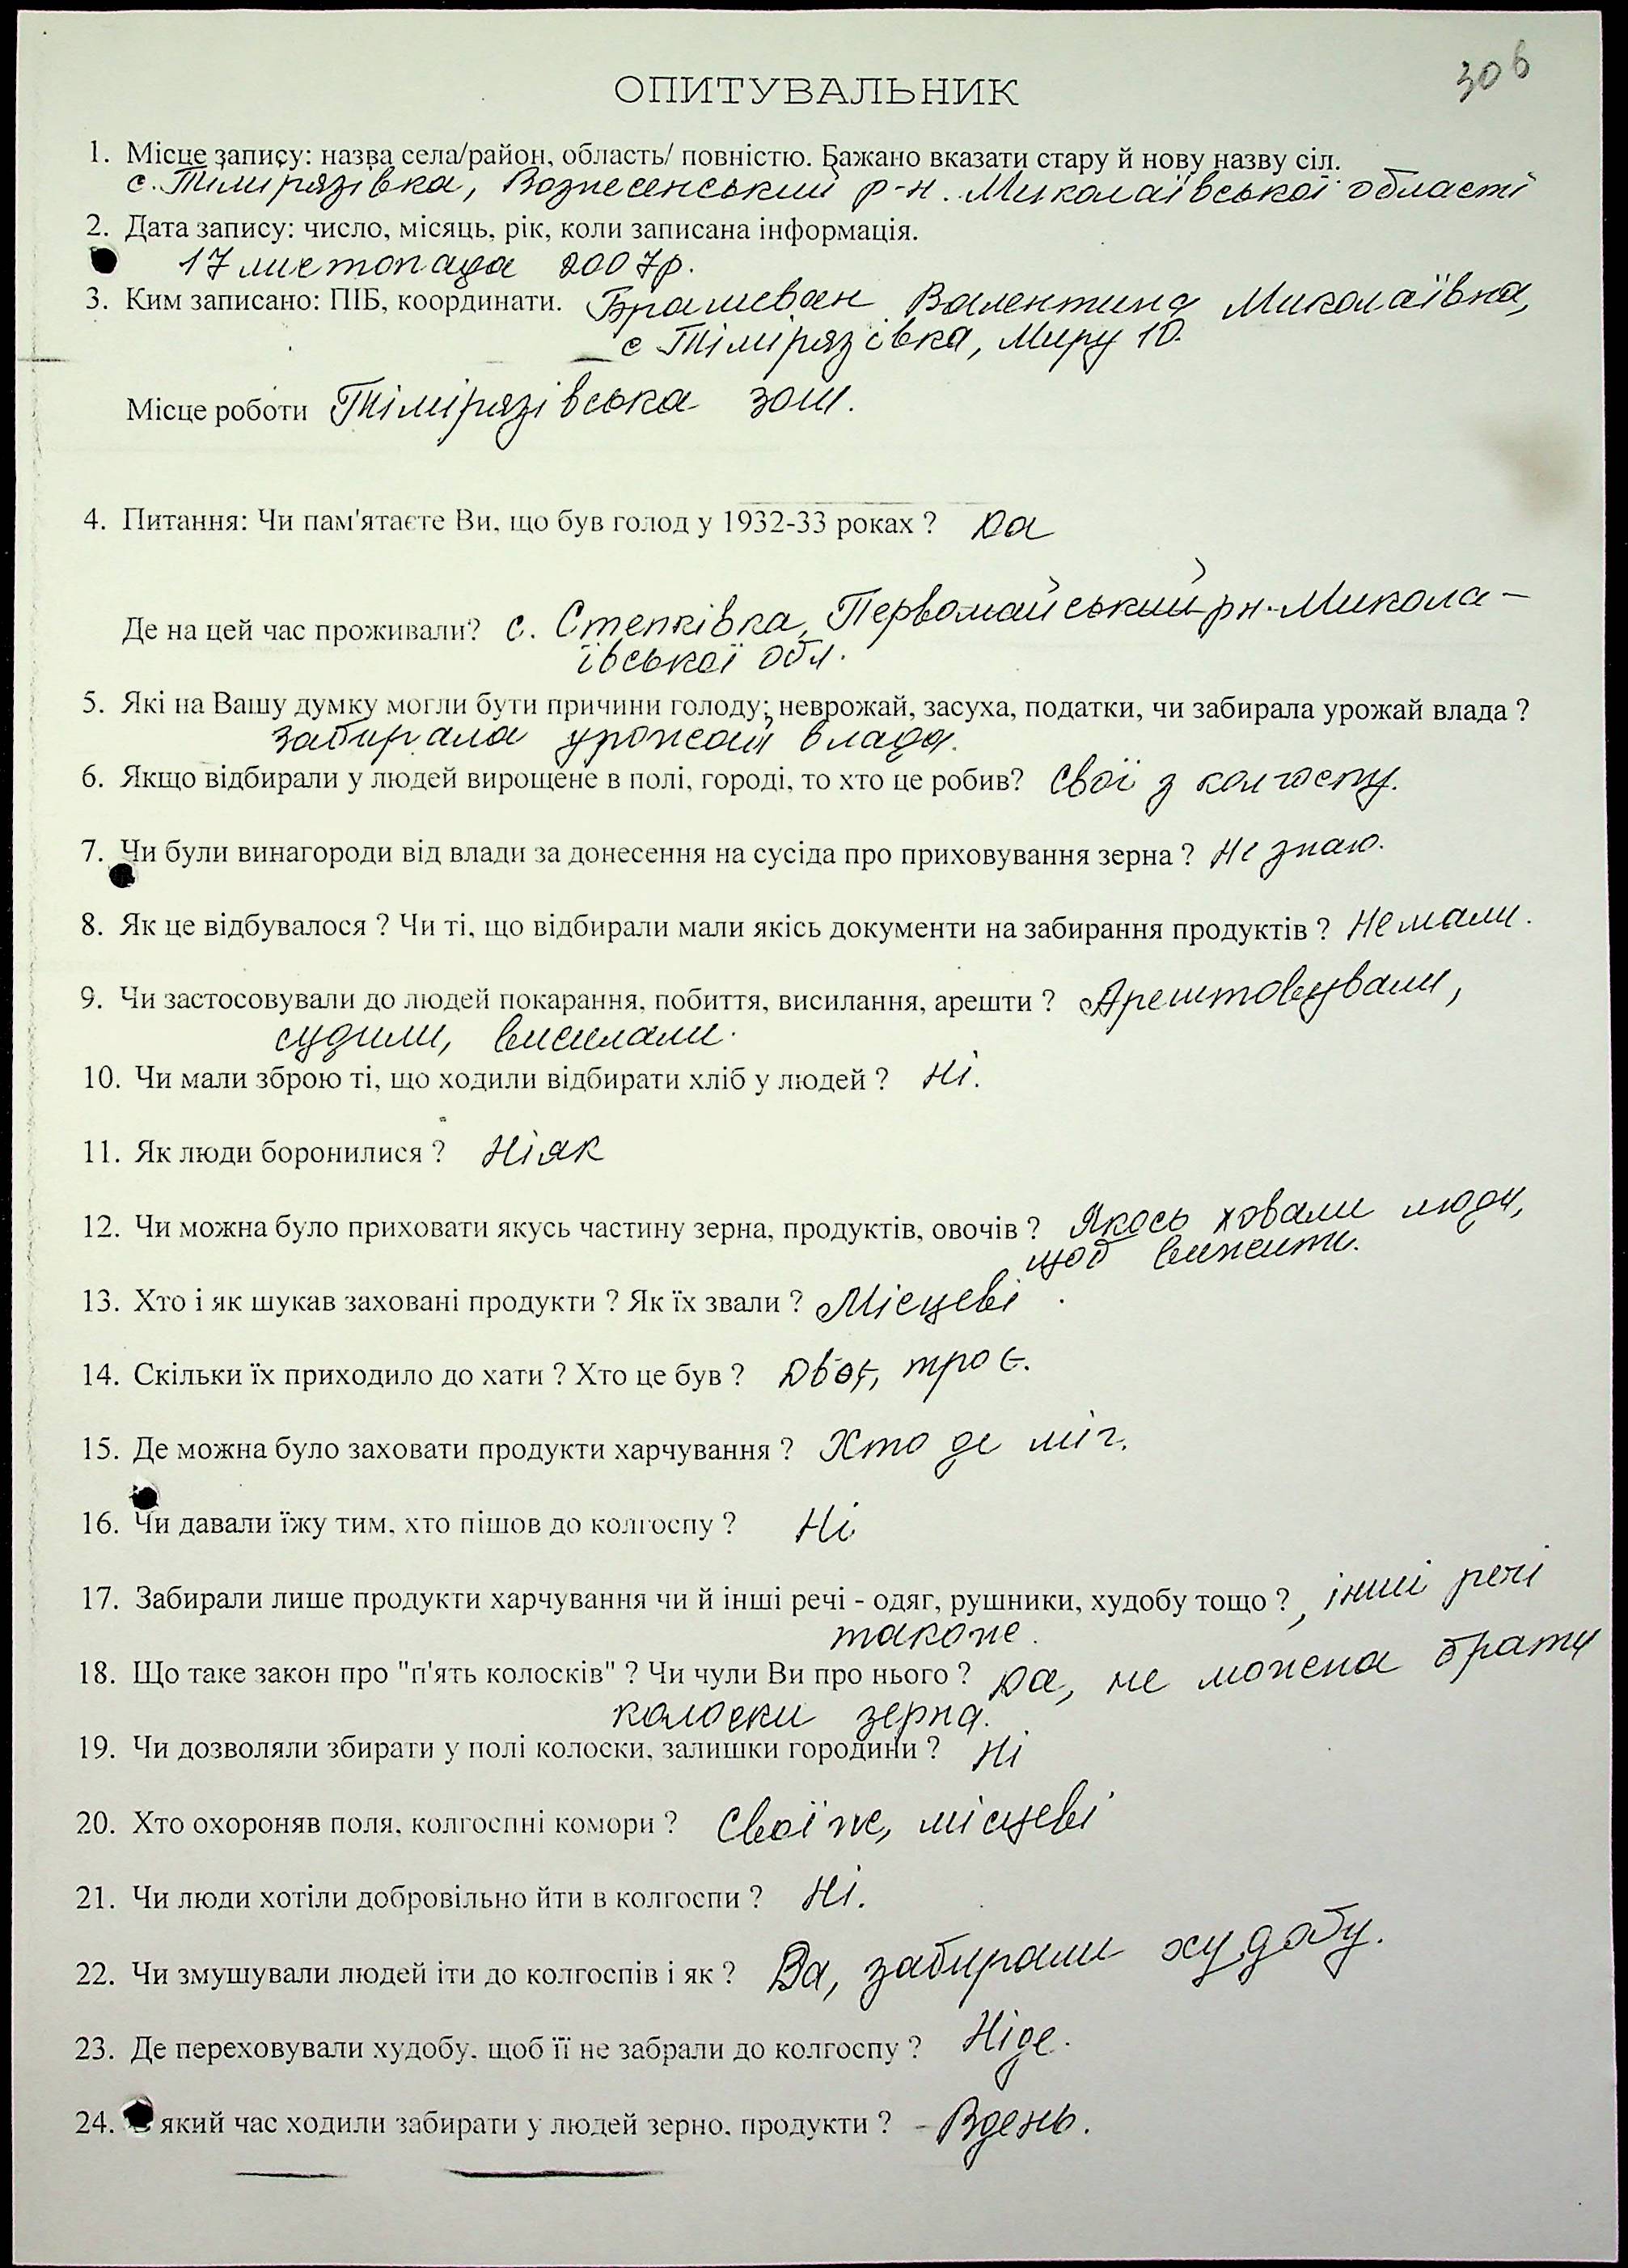 306
ОПИТУВАЛЬНИК
1. Місце запису: назва села/район, область/ повністю. Бажано вказати стару й нову назву сіл.
с. Тімірязівка, Вознесенський р-н. Миколаївської області
2. Дата запису: число, місяць, рік, коли записана інформація.
17 листопада 2007р.
3. Ким записано: ПІБ, координати. Валентина Миколаївна,
с Тімірязівка, Миру 10.
Місце роботи Тімірязівська зош.
4. Питання: Чи пам'ятаєте Ви, що був голод у 1932-33 роках ? Да
Де на цей час проживали? с. Степківка, Первомайський рн. Микола-
ївської обл.
5. Які на Вашу думку могли бути причини голоду; неврожай, засуха, податки, чи забирала урожай влада ?
забирала урожай влада.
6. Якщо відбирали у людей вирощене в полі, городі, то хто це робив? Свої з колгоспу.
7. Чи були винагороди від влади за донесення на сусіда про приховування зерна ? Не знаю.
8. Як це відбувалося ? Чи ті, що відбирали мали якісь документи на забирання продуктів ? Не мали.
9. Чи застосовували до людей покарання, побиття, висилання, арешти ? Арештовували,
судили, висилали.
10. Чи мали зброю ті, що ходили відбирати хліб у людей ? Ні.
11. Як люди боронилися ? Ніяк
12. Чи можна було приховати якусь частину зерна, продуктів, овочів ? Якось ховали люди,
щоб вижити.
13. Хто і як шукав заховані продукти ? Як їх звали ? Місцеві.
14. Скільки їх приходило до хати ? Хто це був ? Двоє, троє.
15. Де можна було заховати продукти харчування ? Хто де міг.
16. Чи давали їжу тим, хто пішов до колгоспу ? Ні
17. Забирали лише продукти харчування чи й інші речі - одяг, рушники, худобу тощо ? , інші речі
також.
18. Що таке закон про "п'ять колосків" ? Чи чули Ви про нього ? Да, не можна брати
колоски зерна.
19. Чи дозволяли збирати у полі колоски, залишки городини ? Ні
20. Хто охороняв поля, колгоспні комори ? Свої же, місцеві
21. Чи люди хотіли добровільно йти в колгоспи ? Ні.
22. Чи змушували людей іти до колгоспів і як ? Да, забирали худобу.
23. Де переховували худобу, щоб її не забрали до колгоспу ? Ніде.
24. який час ходили забирати у людей зерно, продукти ? - Вдень.